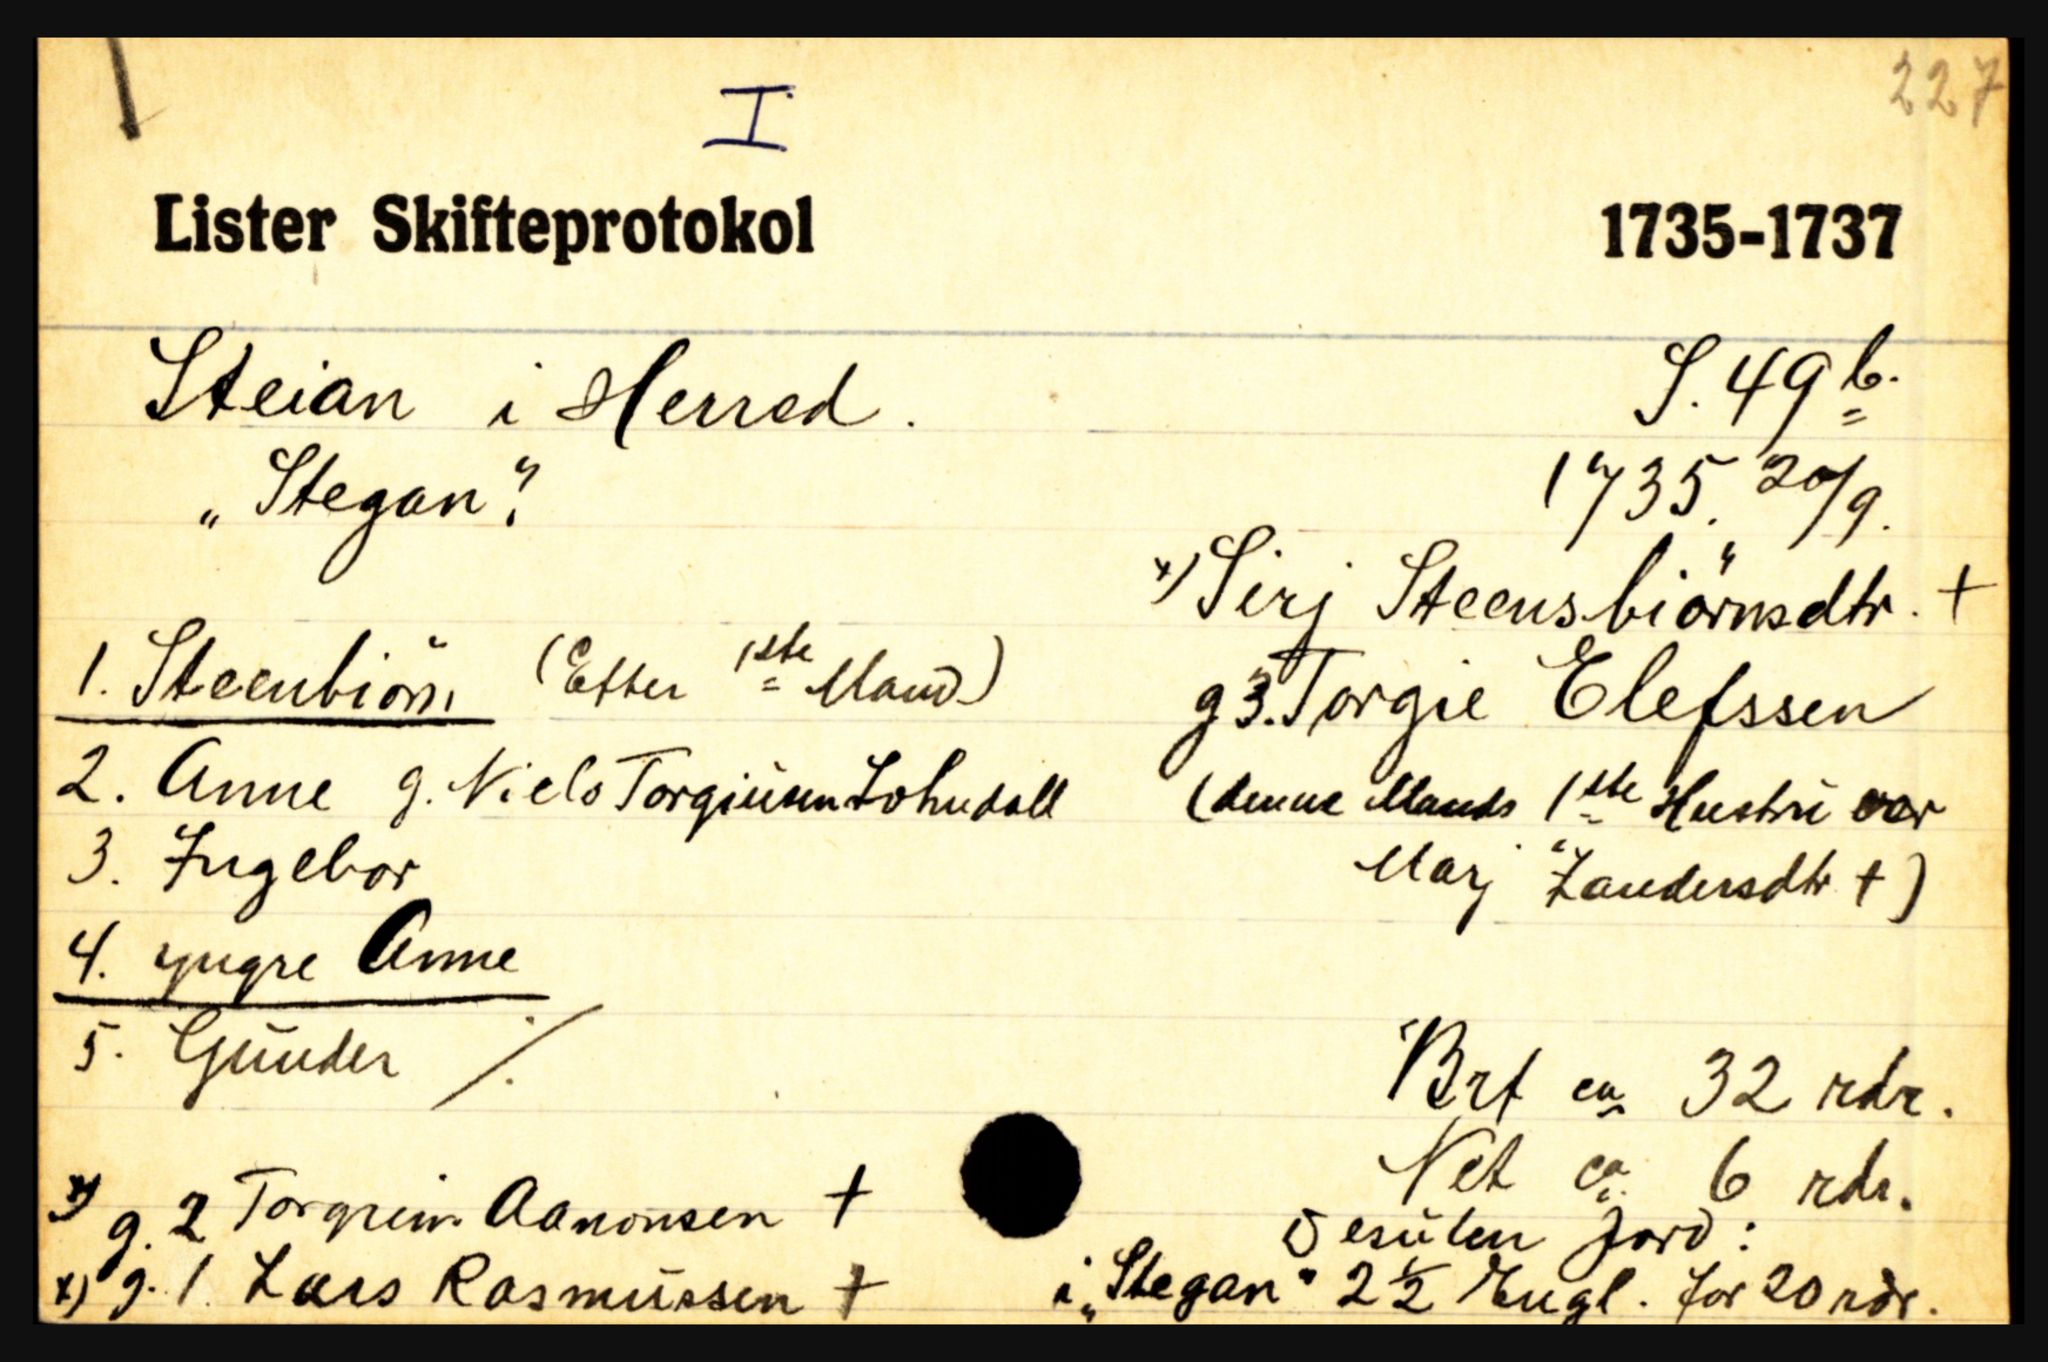 227
I
Lister Skifteprotokol 1735-1737
Steian i Herred. S. 49 b.
„Stegan"? 1735. 20/9.
x) Sirj Steensbiörnsdtr. +
1. Steenbiörn (Efter 1ste Mand) g 3. Torgie Elefssen
2. Anne g. Niels Torgiüsen Lohndall (denne Mands 1ste Hustrü var
3. Ingebor Marj Zandersdtr +)
4. yngre Anne
5. Gunder ⁒
Brt ca 32 rdr.
Net ca. 6 rdr.
x) g. 2 Torgrim Aanonsen + Desüten Jord:
x) g. 1. Lars Rasmüssen + i „Stegan" 2 1/2 Engl. for 20 rdr.